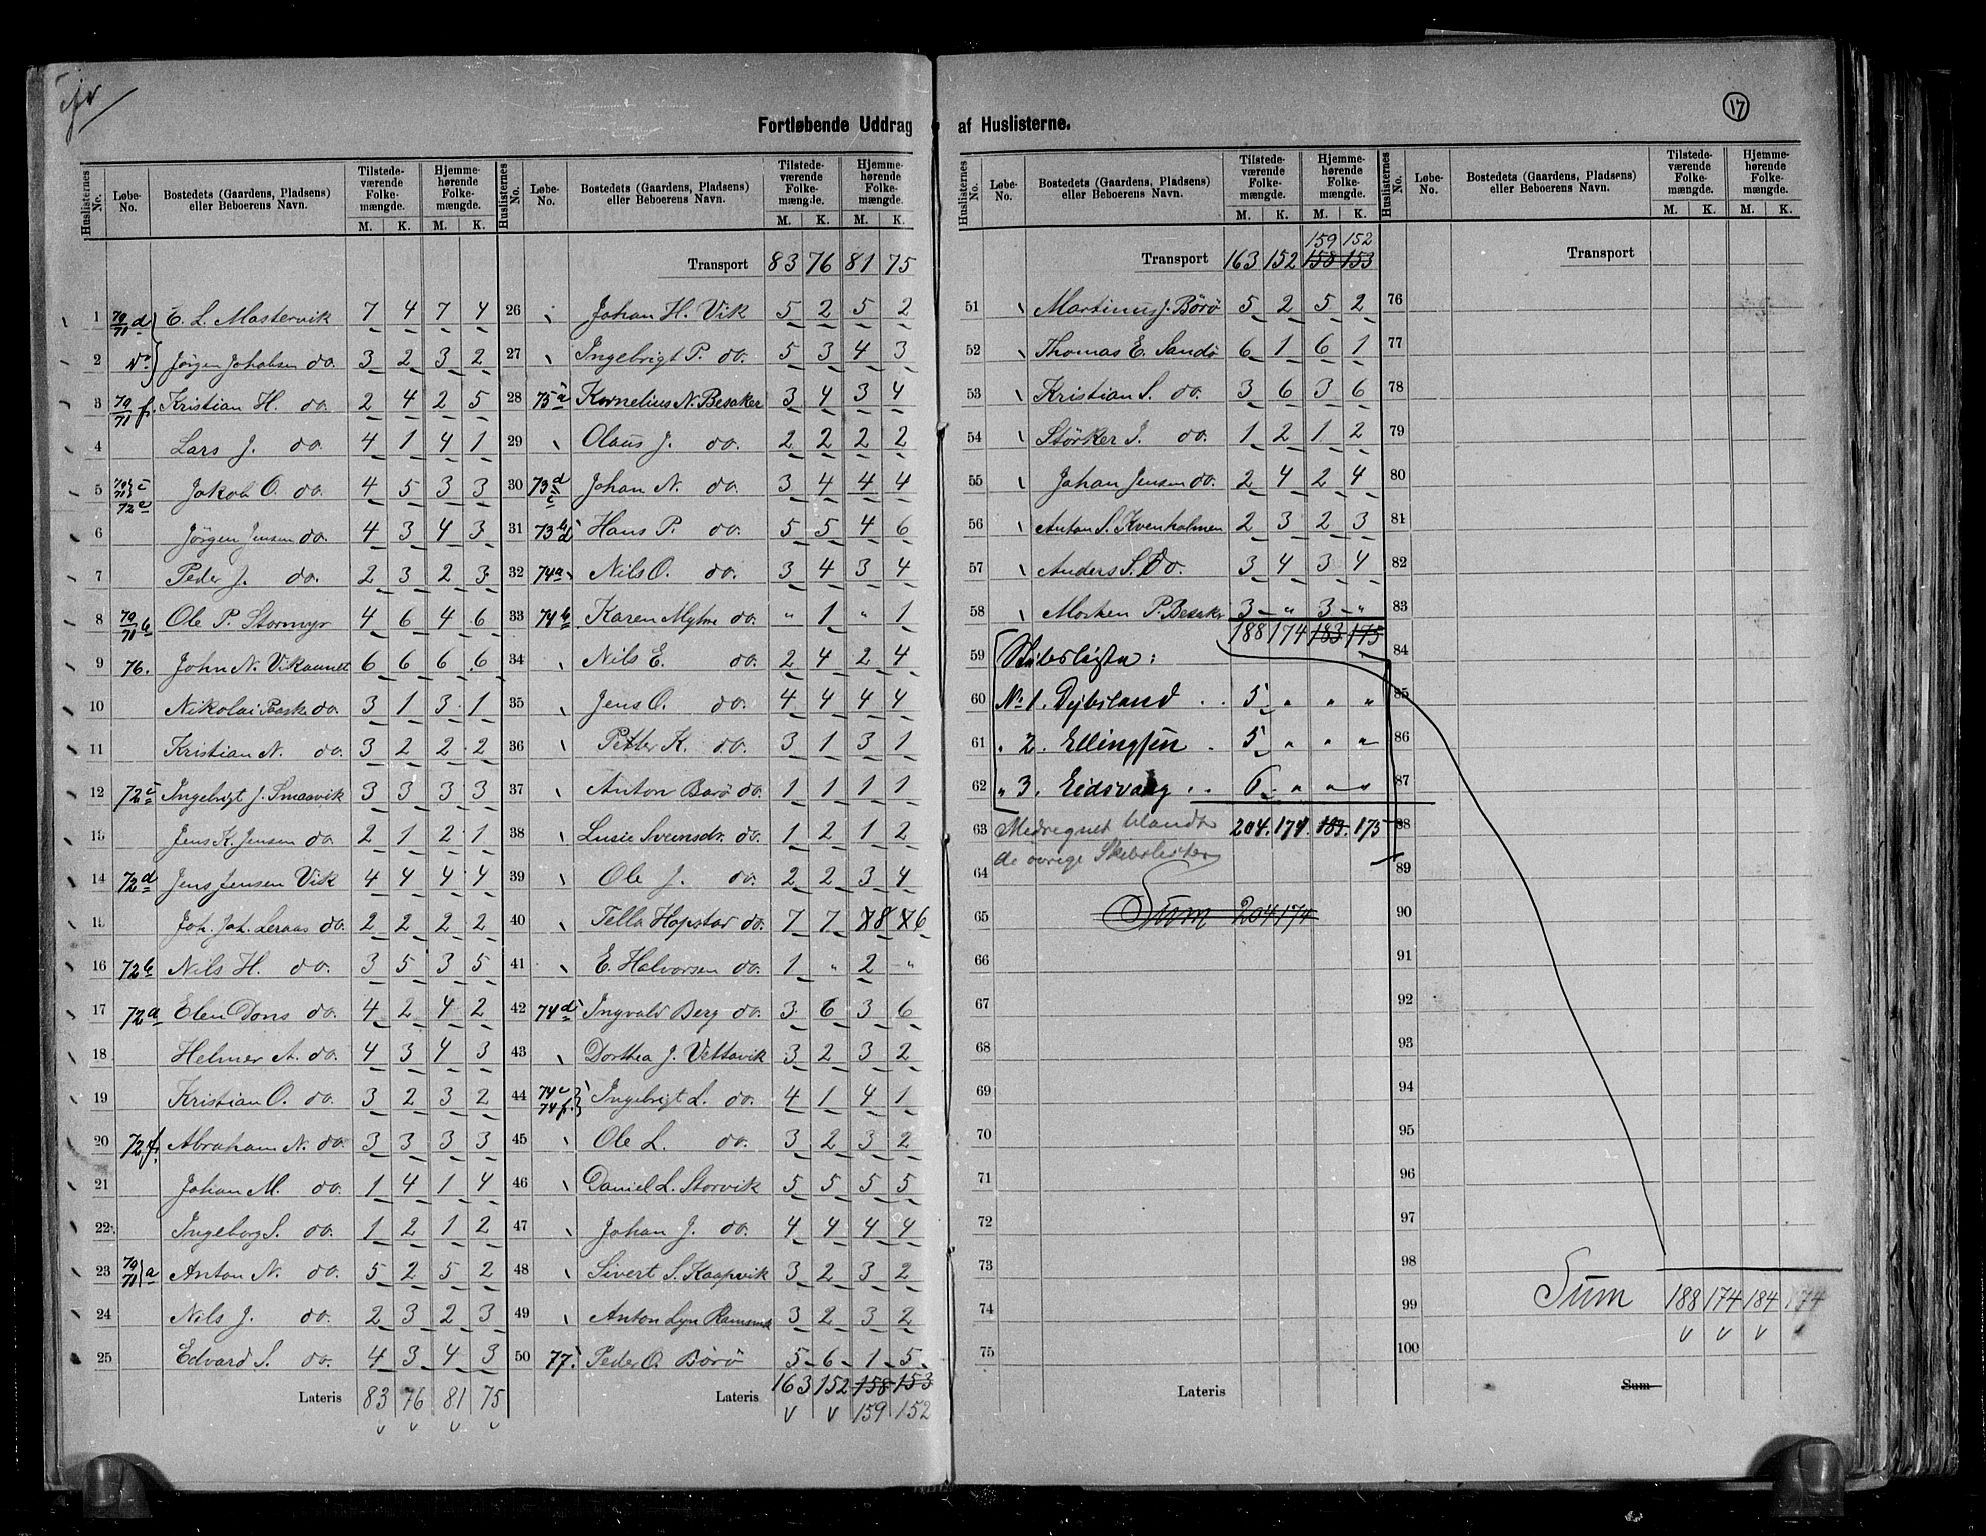 Fortløbende Uddrag af Huslisterne.
17
Huslisternes No. Løbe-No. Bostedets (Gaardens, Pladsens) eller Beboerens Navn. Tilstedeværende Folkemængde. M. K. Hjemmehørende Folkemængde. M. K.
1 70/71 d E. L. Mastervik 7 4 7 4
2 do Jørgen Johansen do. 3 2 3 2
3 70/71 f. Kristian H. do. 2 4 2 5
4 Lars J. do. 4 1 4 1
5 70/71 c 72 e Jakob O. do. 4 5 3 3
6 Jørgen Jensen do. 4 3 4 3
7 Peder J. do. 2 3 2 3
8 70/71 b Ole P. Stormyr 4 6 4 6
9 76. John N. Vikamnet 6 6 6 6
10 Nikolai Raske do. 3 1 3 1
11 Kristian N. do. 3 2 2 2
12 72 c Ingebrigt J. Smaavik 3 3 3 3
13 Jens K. Jensen do. 2 1 2 1
14 72 d Jens Jensen Vik 4 4 4 4
15 Joh. Joh. Leraas do. 2 2 2 2
16 72 b Nils H. do. 3 5 3 5
17 72 a Elen Dons do. 4 2 4 2
18 Helmer A. do. 4 3 4 3
19 Kristian O. do. 3 2 3 2
20 72 f. Abraham N. do. 3 3 3 3
21 Johan M. do. 1 4 1 4
22 Ingeborg S. do. 1 2 1 2
23 70/71 a Anton N. do. 5 2 5 2
24 Nils J. do. 2 3 2 3
25 Edvard S. do. 4 3 4 3
Lateris 83 76 81 75
Huslisternes No. Løbe-No. Bostedets (Gaardens, Pladsens) eller Beboerens Navn. Tilstedeværende Folkemængde. M. K. Hjemmehørende Folkemængde. M. K.
Transport 83 76 81 75
26 Johan H. Vik 5 2 5 2
27 Ingebrigt P. do. 5 3 4 3
28 75 a Kornelius N. Besaker 3 4 3 4
29 Olaus J. do. 2 2 2 2
30 73 d c Johan N. do. 3 4 4 4
31 73 b d Hans P. do. 5 5 4 6
32 74 a Nils O. do. 3 4 3 4
33 74 b Karen Myhre do. " 1 " 1
34 Nils E. do. 2 4 2 4
35 Jens O. do. 4 4 4 4
36 Petter K. do. 3 1 3 1
37 Anton Borø do. 1 1 1 1
38 Lusie Sveinsdr. do. 1 2 1 2
39 Ole J. do. 2 2 3 4
40 Tella Hopstad do. 7 7 8 6
41 E. Halvorsen do. 1 " 2 "
42 74 d Ingvald Berg do. 3 6 3 6
43 Dorthea J. Vettavik 3 2 3 2
44 74 e 74 f. Ingebrigt L. do. 4 1 4 1
45 Ole L. do. 3 2 3 2
46 Daniel L. Storvik 5 5 5 5
47 Johan J. do. 4 4 4 4
48 Sivert S. Kaapvik 3 2 3 2
49 Anton Lyn Ramsvik 3 2 3 2
50 77. Peder O. Börö 5 6 1 5
Lateris 163 152 158 153
159 152
Huslisternes No. Løbe-No. Bostedets (Gaardens, Pladsens) eller Beboerens Navn. Tilstedeværende Folkemængde. M. K. Hjemmehørende Folkemængde. M. K.
159 152
Transport 163 152 158 153
51 Martinus J. Börö 5 2 5 2
52 Thomas E. Sandö 6 1 6 1
53 Kristian S. do. 3 6 3 6
54 Störker J. do. 1 2 1 2
55 Johan Jensen do. 2 4 2 4
56 Anton S. Kvenholmen 2 3 2 3
57 Anders S. Do. 3 4 3 4
58 Morten P. Besaker 3 " 3 "
188 174 183 175
59 Skibslister:
60 No 1. Dybsland . . 5 " " "
61 " 2. Ellingsen . 5 " " "
62 " 3. Eidsvaag . . 6 " " "
63 Medregnet blandt 204. 174. 183. 175
de øvrige Skibslister
64
65 Sum 204 174
66
67
68
69
70
71
72
73
74
75
Lateris
Huslisternes No. Løbe-No. Bostedets (Gaardens, Pladsens) eller Beboerens Navn. Tilstedeværende Folkemængde. M. K. Hjemmehørende Folkemængde. M. K.
Transport
76
77
78
79
80
81
82
83
84
85
86
87
88
89
90
91
92
93
94
95
96
97
98
99 Sum 188 174 184 174
100
Sum